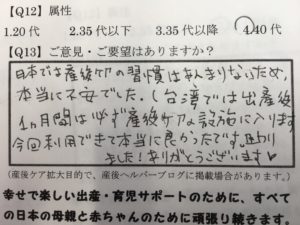 【Q12】属性
1.20代 2.35代以下 3.35代以降 4.40代
【Q13】ご意見・ご要望はありますか？
日本では産後ケアの習慣はあんまりないため、
本当に不安でした。（台湾では出産後
1ヵ月間は必ず産後ケアの設施に入ります
今回利用できて本当に良かったです。助かり
ました！ありがとうございます♥
（産後ケア拡大目的で、産後ヘルパーブログに掲載場合があります。）
幸せで楽しい出産・育児サポートのために、すべて
の日本の母親と赤ちゃんのために頑張り続きます。